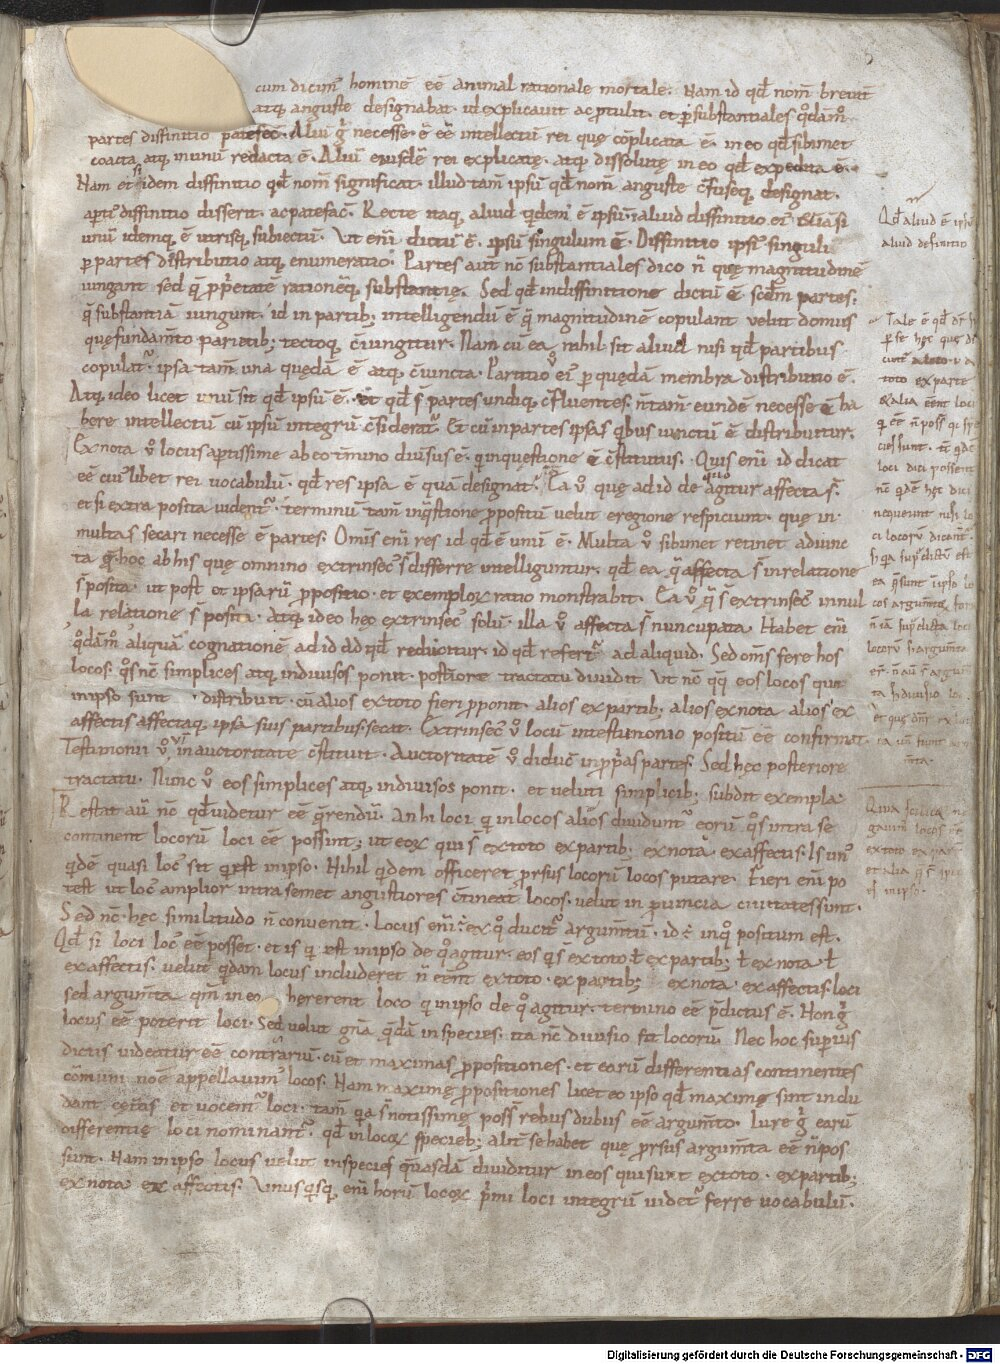 cum dicim̄ hominē eē animal rationale mortale. Nam id qđ nom̄ breuit̄
atq; anguste designabat. id explicauit ac ptulit. et p̄ substantiales q̊dam̄
partes diffinitio patefec̄. Aliū ḡ necesse ē eē intellectū rei quę cōplicata ē. in eo qđ sibimet
coacta atq; in unū redacta ē. Aliū eiusdē rei explicatę atq; dissolutę in eo qđ expedita ē.
Nam etsi idem diffinitio qđ nom̄ significat. illud tam̄ ipsū qđ nom̄ anguste c̄fuseq; designat.
apte diffinitio disserit. ac patefac̄. Recte itaq; aliud q̇dem ē ipsū. aliud diffinitio ei'. & si
unū idemq; ē utrisq; subiectū. Ut eni dictū ē. ipsū singulum ē. Diffinitio ipsi' singuli
p̄ partes distributio atq; enumeratio. Partes aut̄ nc̄ substantiales dico n̄ quę magnitudinē
iungant sed q̨ p̄prietatē rationēq; substantię. Sed qđ in diffinitione dictū ē scd̄m partes.
q̨ substantiā iungunt. id in partib; intelligendū ē q̨ magnitudinē copulant velut domus
quę fundam̄to parietib; tectoq; c̄iungitur. Nam cū ea nihil sit aliud nisi qđ partibus
copulat̄. ipsa tam̄ una quędā ē atq; c̄iuncta. Partitio ū ei' p quędā membra distributio ē.
Atq; ideo licet unū sit qđ ipsū ē. et qđ s̄ partes undiq; c̄fluentes. n̄ tam̄ eundē necesse ē ha
bere intellectū cū ipsū integrū c̄siderat̄. Et cū in partes ipsas q̇bus iunctū ē distribuitur.
Ex nota ū locus aptissime ab eo t̄mino diuisus ē. qui in quęstione ē c̄stitutus. Quis eni id dicat
eē cui' libet rei uocabulū. qđ res ipsa ē quā designat. Ea ū quę ad id de quo agitur affecta s̄.
etsi extra posita uident̄. terminū tam̄ in q̨stione p̄positū velut e regione respiciunt. quę in
multas secari necesse ē partes. Omīs eni res id qđ ē unū ē. Multa ū sibimet retinet adiunc
ta ḡ hoc ab his quę omnino extrinsec' s̄ differre intelliguntur. qđ ea q̨ affecta s̄ in relatione
s̄ posita. ut post et ipsarū p̄positio. et exemploꝝ ratio monstrabit. Ea ū q̨ s̄ extrinsec' in nul
la relatione s̄ posita. atq; ideo hęc extrinsec' solū. illa ū affecta s̄ nuncupata. Habet eni
q̊dam̄ aliquā cognationē ad id ad qđ reducitur. id qđ refert̄ ad aliquid. Sed omīs fere hos
locos. q̊s nc̄ simplices atq; indiuisos ponit. posteriore tractatu diuidit. Ut nc̄ q̇q; eos locos qui
in ipso sunt. distribuit. cū alios ex toto fieri p̄ponit. alios ex partib; alios ex nota alios ex
affectis affectaq; ipsa suis partibus secat. Extrinsec' ū locū in testimonio positū eē confirmat.
Testimonii ū uim in auctoritate c̄stituit. Auctoritatē ū diduc̄ in p̄prias partes. Sed hęc posteriore
tractatu. Nunc ū eos simplices atq; indiuisos ponit. et veluti simplicib; subdit exempla
Restat aū nc̄ qđ uidetur eē q̨rendū. An hi loci q̇ in locos alios diuidunt̄ eorū q̊s intra se
continent locorū loci eē possint; ut eoꝝ qui s̄ ex toto ex partib; ex nota. ex affectis. Is un'
q̇dē quasi loc' sit q̇ est in ipso. Nihil q̇dem officeret p̄rsus locorū locos putare. Fieri eni po
test ut loc' amplior intra semet angustiores c̄tineat locos. velut in puincia ciuitates sunt.
Sed nc̄ hęc similitudo n̄ conuenit. Locus eni ē ex q̊ ducit̄ argum̄tū. id ē in q̊ positum est.
Qđ si loci loc' eē posset. et is q̇ est in ipso de q̊ agitur. eos q̇ s̄ ex toto ł ex partib; ł ex nota ł
ex affectis. velut q̇dam locus includeret n̄ eēnt ex toto. ex partib; ex nota. ex affectis. loci
sed argum̄ta. qm̄ in eo hererent loco q̇ in ipso de q̊ agitur. termino eē p̄dictus ē. Non ḡ
locus eē poterit loci. Sed uelut gn̄a q̨dā in species. ita nc̄ diuisio fit locorū. Nec hoc superius
dictis uideatur eē contrariū. cū et maximas p̄positiones. et earū differentias continentes
cōmuni noe appellauim' locos. Nam maximę p̄positiones licet eo ipso qđ maximę sint indu
dant cęt̄as et uocent̄ loci. tam̄ q̇a s̄ notissimę poss̄ rebus dubiis eē argum̄to. Iure ḡ earū
differentię loci nominant̄. qđ in locoꝝ specieb; alit̄ se habet quę p̄rsus argum̄ta eē n̄ pos
sunt. Nam in ipso locus velut in species quasdā diuiditur in eos qui sunt ex toto. ex partib;
ex nota ex affectis. Unus q̇sq; eni horū locoꝝ p̄mi loci integrū uidet̄ ferre uocabulū.
Qđ aliud ē ipsū
aliud definitio
Tale ē qđ dr̄
toto ex parte
& alia eent loci
loci dici possent
nequeunt nisi lo
ci locorū dicant̄.
ea q̨ sunt in ipso lo
locorū s; argum̄ta
Quia
gauim' locos eē
ex toto ex partib;
et alia q̨ s̄ ipsi'
in ipso.
Digitalisierung gefördert durch die Deutsche Forschungsgemeinschaft - DFG